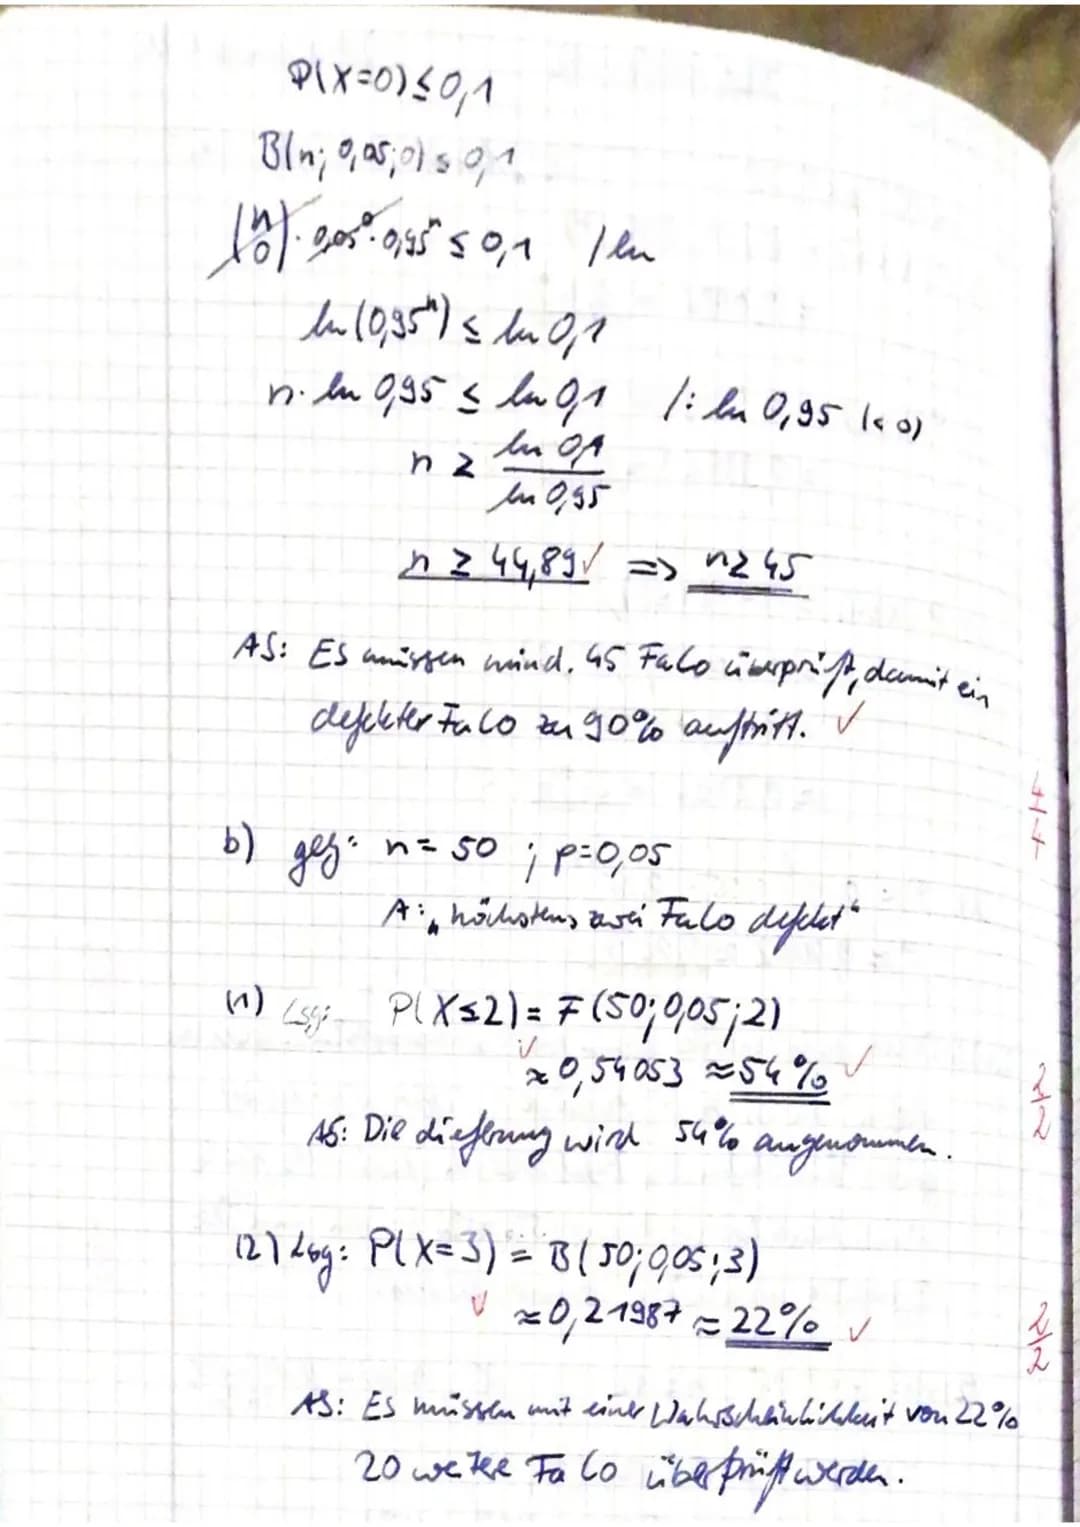 P(X=0) ≤ 0,1
B(n; 0,05; 0) ≤ 0,1
(n 0) · 0,05⁰ · 0,95ⁿ ≤ 0,1 | ln
ln (0,95ⁿ) ≤ ln 0,1
n · ln 0,95 ≤ ln 0,1 | : ln 0,95 (< 0)
n ≥ ln 0,1 / ln 0,95
n ≥ 44,89 ✓ => n ≥ 45
AS: Es müssen mind. 45 FaLo überprüft, damit ein
defekter FaLo zu 90% auftritt. ✓
4/4
b) geg: n = 50 ; p=0,05
A: „höchstens zwei FaLo defekt“
(1) Lsg: P(X≤2) = F(50; 0,05; 2)
✓ ≈ 0,54053 ≈ 54% ✓
2/2
AS: Die Lieferung wird 54% angenommen.
(2) Lsg: P(X=3) = B(50; 0,05; 3)
✓ ≈ 0,21987 ≈ 22% ✓
2/2
AS: Es müssen mit einer Wahrscheinlichkeit von 22%
20 weitere FaLo überprüft werden.